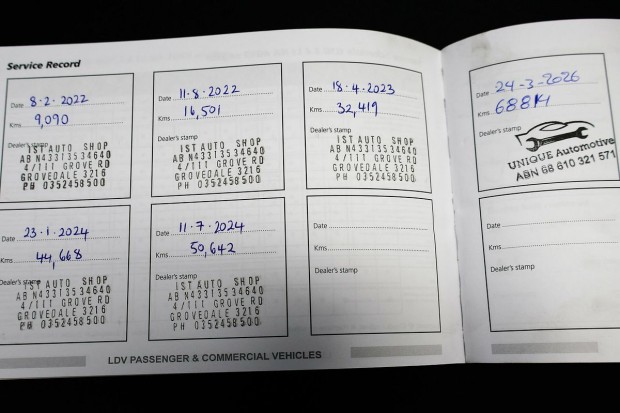 Service Record
Date 8.2.2022
Kms 9,090
Dealer's stamp
1ST AUTO SHOP
ABN43313534640
4/111 GROVE RD
GROVEDALE 3216
PH 0352458500
Date 11.8.2022
Kms 16,501
Dealer's stamp
1ST AUTO SHOP
ABN43313534640
4/111 GROVE RD
GROVEDALE 3216
PH 0352458500
Date 18.4.2023
Kms 32,419
Dealer's stamp
1ST AUTO SHOP
ABN43313534640
4/111 GROVE RD
GROVEDALE 3216
PH 0352458500
Date 23.1.2024
Kms 44,668
Dealer's stamp
1ST AUTO SHOP
ABN43313534640
4/111 GROVE RD
GROVEDALE 3216
PH 0352458500
Date 11.7.2024
Kms 50,642
Dealer's stamp
1ST AUTO SHOP
ABN43313534640
4/111 GROVE RD
GROVEDALE 3216
PH 0352458500
Date
Kms
Dealer's stamp
LDV PASSENGER & COMMERCIAL VEHICLES
Date 24-3-2026
Kms
Dealer's stamp
UNIQUE Automotive
ABN 68 610 321 571
Date
Kms
Dealer's stamp